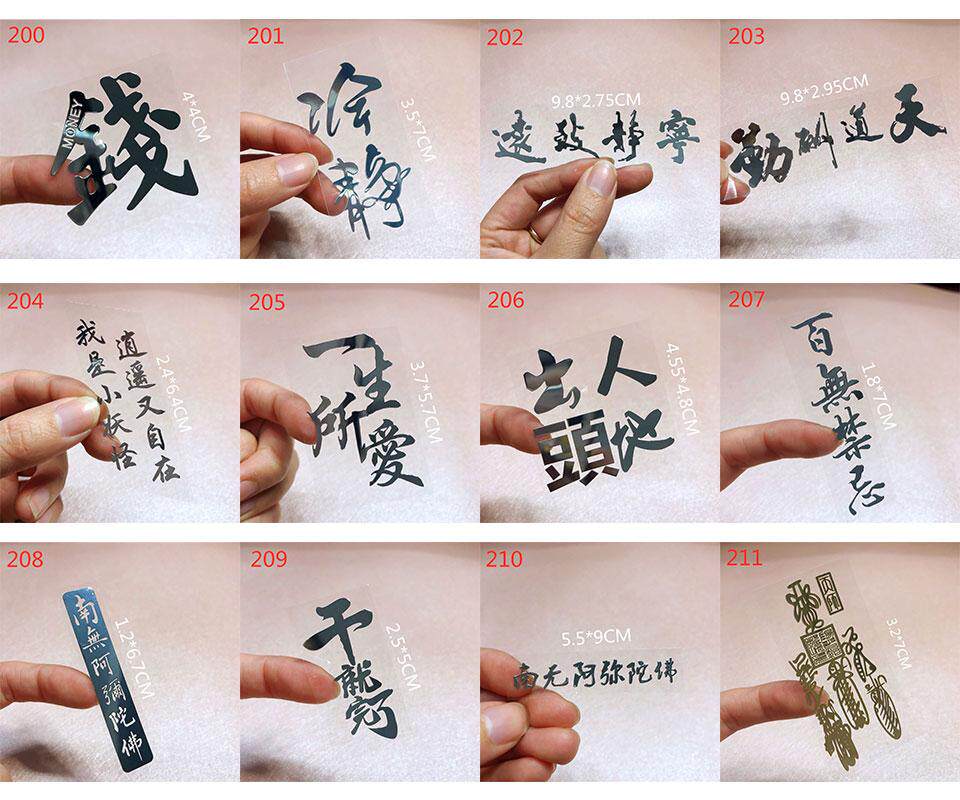 200
錢
MONEY
4*4CM
201
冷靜
3.5*7CM
202
9.8*2.75CM
寧静致遠
203
9.8*2.95CM
天道酬勤
204
我是小妖怪
逍遥又自在
2.4*6.4CM
205
一生
所愛
3.7*5.7CM
206
出人
頭地
4.55*4.8CM
207
百無禁忌
1.8*7CM
208
南無阿彌陀佛
1.2*6.7CM
209
干就完了
2.5*5CM
210
5.5*9CM
南无阿弥陀佛
211
3.2*7CM